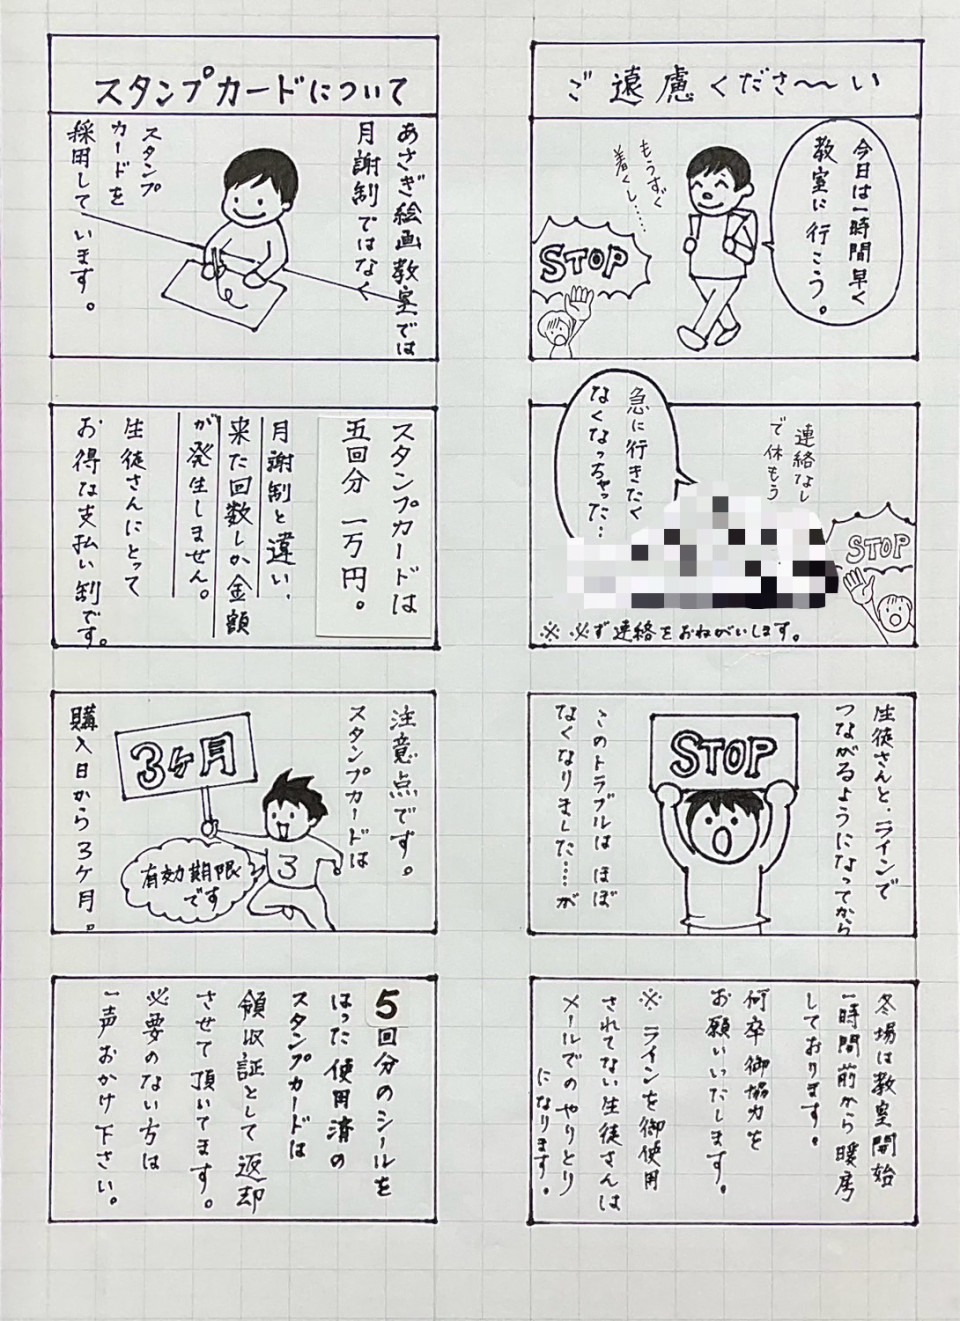 ご遠慮くださ〜〜い
今日は一時間早く
教室に行こう。
もうすぐ
着くし……
STOP
急に行きたく
なくなっちゃった…
連絡なし
で休もう
STOP
※必ず連絡をおねがいします。
生徒さんと、ラインで
つながるようになってから
STOP
このトラブルは ほぼ
なくなりました……が
冬場は教室開始
一時間前から暖房
しております。
何卒御協力を
お願いいたします。
※ ラインを御使用
されてない生徒さんは
メールでのやりとり
になります。
スタンプカードについて
あさぎ絵画教室では
月謝制ではなく
スタンプ
カードを
採用しています。
スタンプカードは
五回分 一万円。
月謝制と違い、
来た回数しか金額
が発生しません。
生徒さんにとって
お得な支払い制です。
注意点です。
スタンプカードは
3ヶ月
3
有効期限
です
購入日から3ケ月。
5回分のシールを
はった使用済の
スタンプカードは
領収証として返却
させて頂いてます。
必要のない方は
一声おかけ下さい。